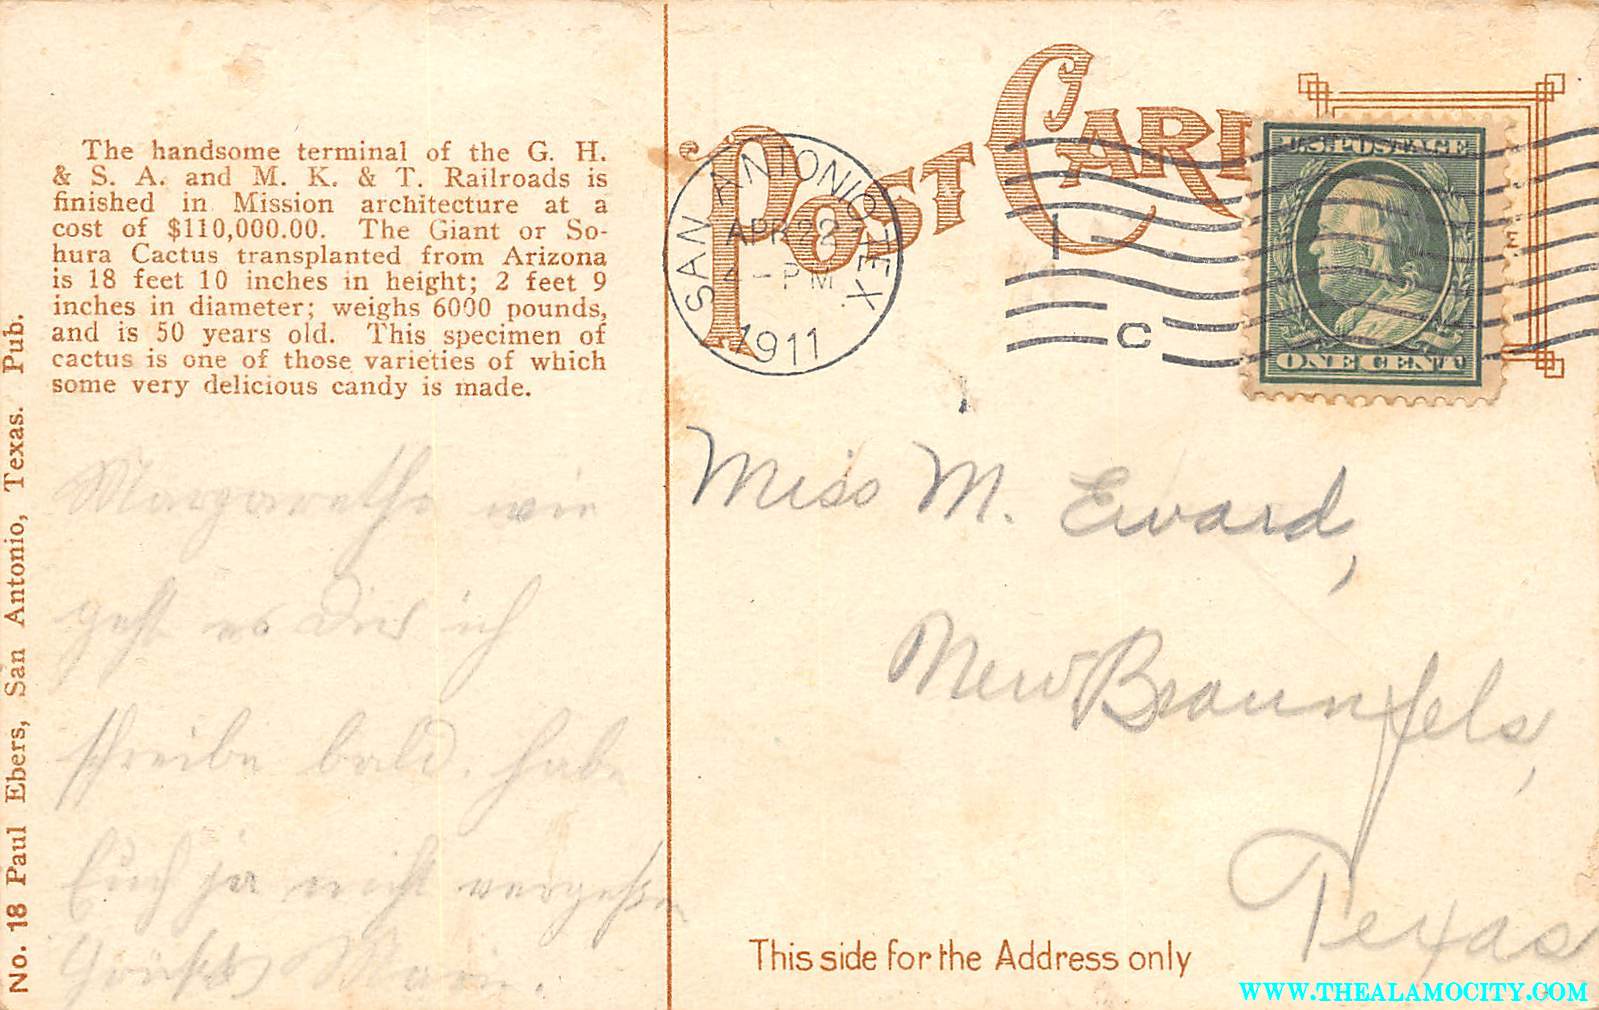 The handsome terminal of the G. H.
& S. A. and M. K. & T. Railroads is
finished in Mission architecture at a
cost of $110,000.00. The Giant or So-
hura Cactus transplanted from Arizona
is 18 feet 10 inches in height; 2 feet 9
inches in diameter; weighs 6000 pounds,
and is 50 years old. This specimen of
cactus is one of those varieties of which
some very delicious candy is made.
No. 18 Paul Ebers, San Antonio, Texas. Pub.
Margarethe wie
geht es Dir ich
schreibe bald. habe
Euch ja nicht vergessen
Marie.
POST CARD
SAN ANTONIO, TEX.
APR 22
4 - PM
1911
1
C
U.S. POSTAGE
ONE CENT
Miss M. Eward,
New Braunfels,
Texas
This side for the Address only
WWW.THEALAMOCITY.COM